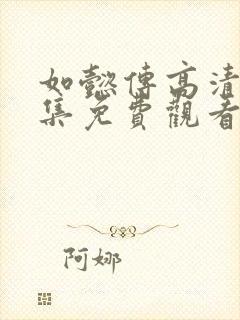 如懿傳高清
集免費觀看
阿娜